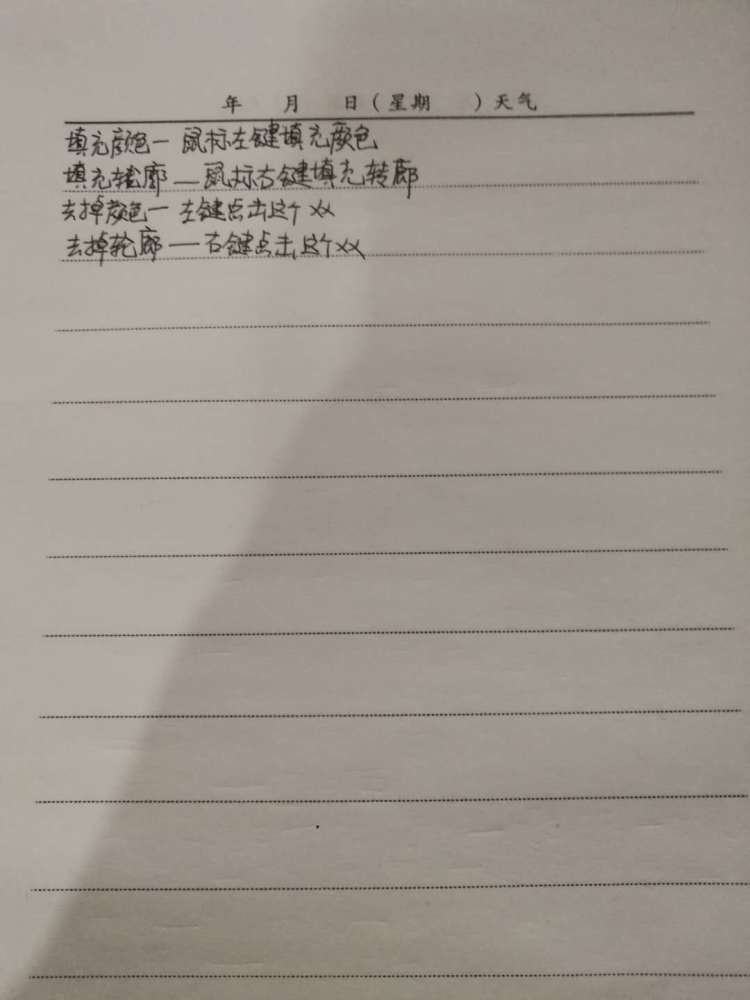 年 月 日（星期 ）天气
填充颜色一 鼠标左键填充颜色
填充轮廓一鼠标右键填充转廓
去掉颜色一 左键点击这个xx
去掉轮廓一右键点击这个xx